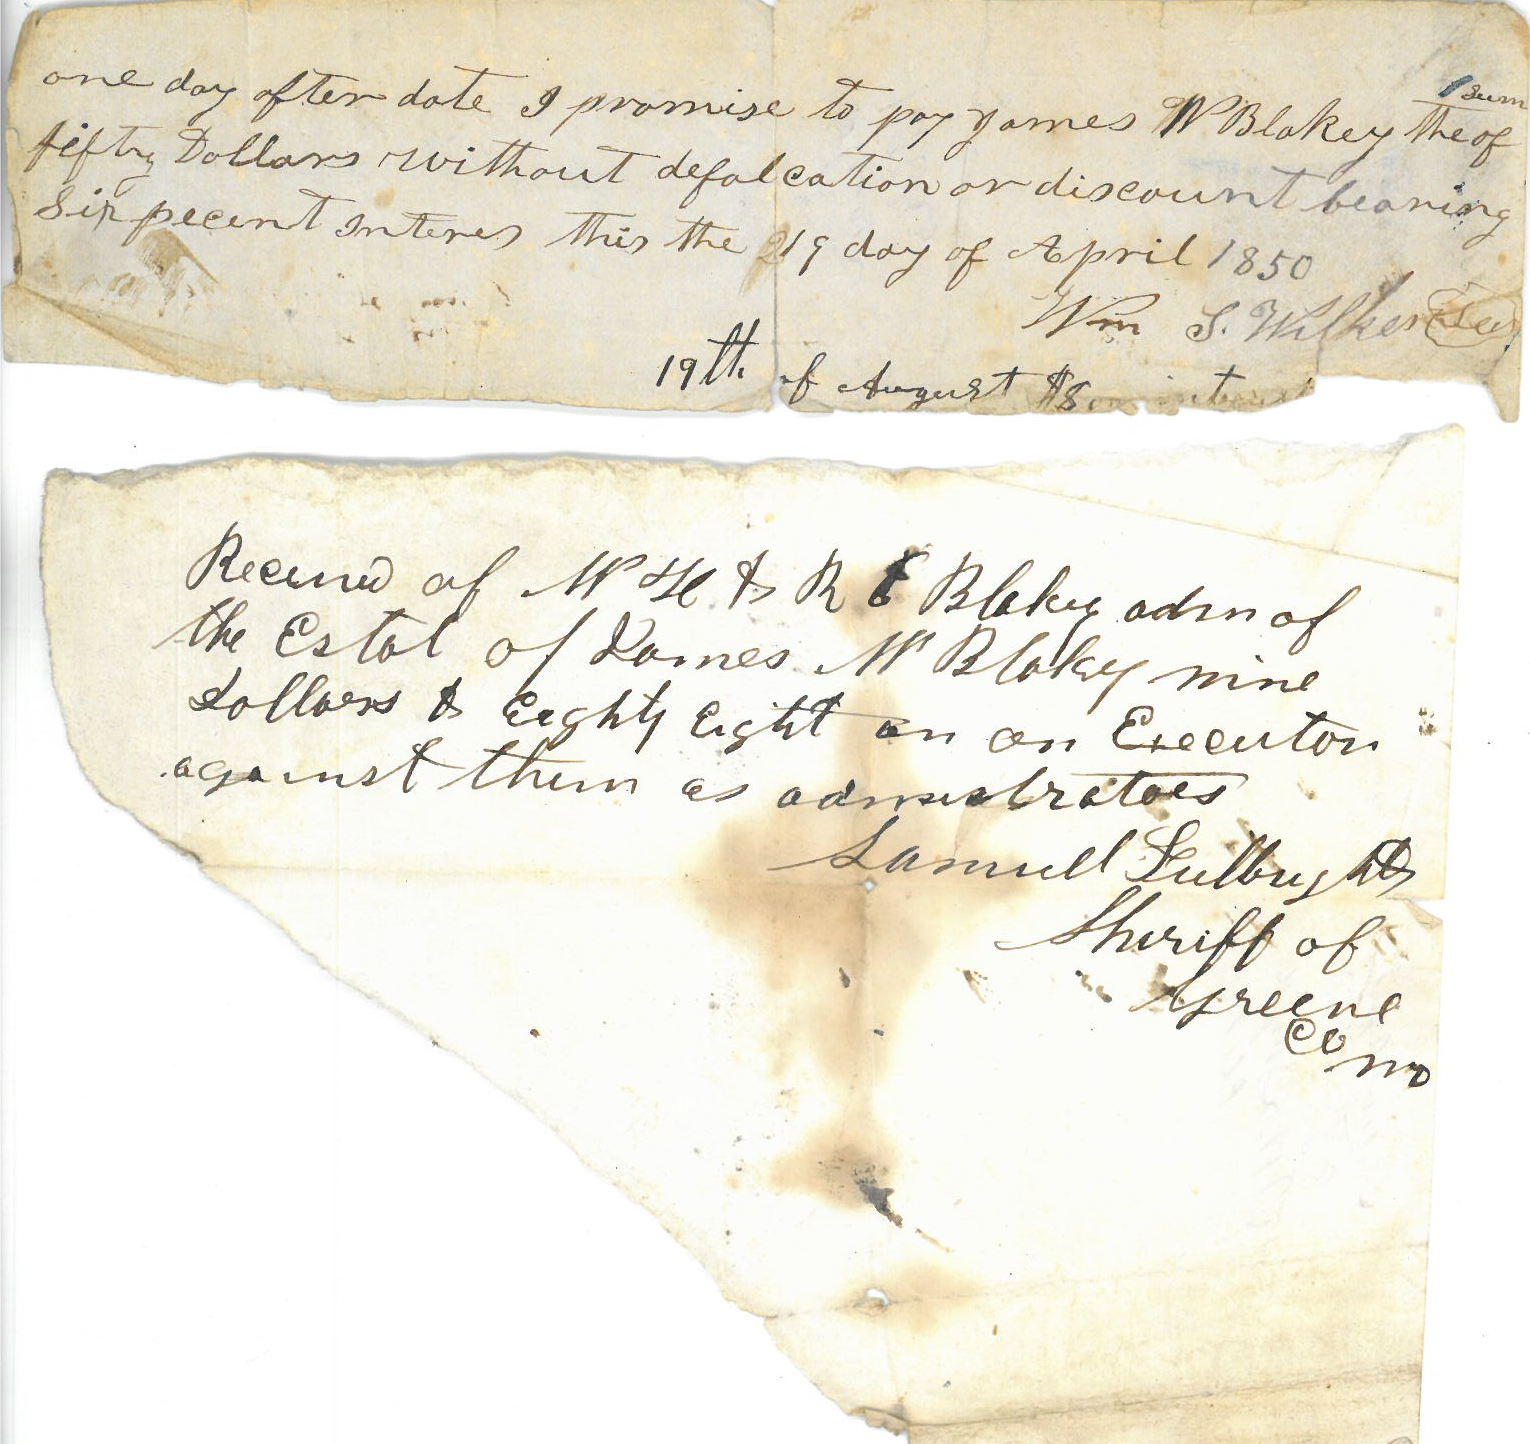 sum
one day after date I promise to pay James W Blakey the of
fifty Dollars without defalcation or discount bearing
Six pecent Interes this the 19 day of April 1850
Wm S. Wilkes Seal
19th of August $8
Received of W H & R Blakey adm of
the Estat of James W Blakey nine
Dollars & Eighty Eight on an Executon
against them as admistratoes
Samuel Fulbright
Sheriff of
Greene
Co Mo